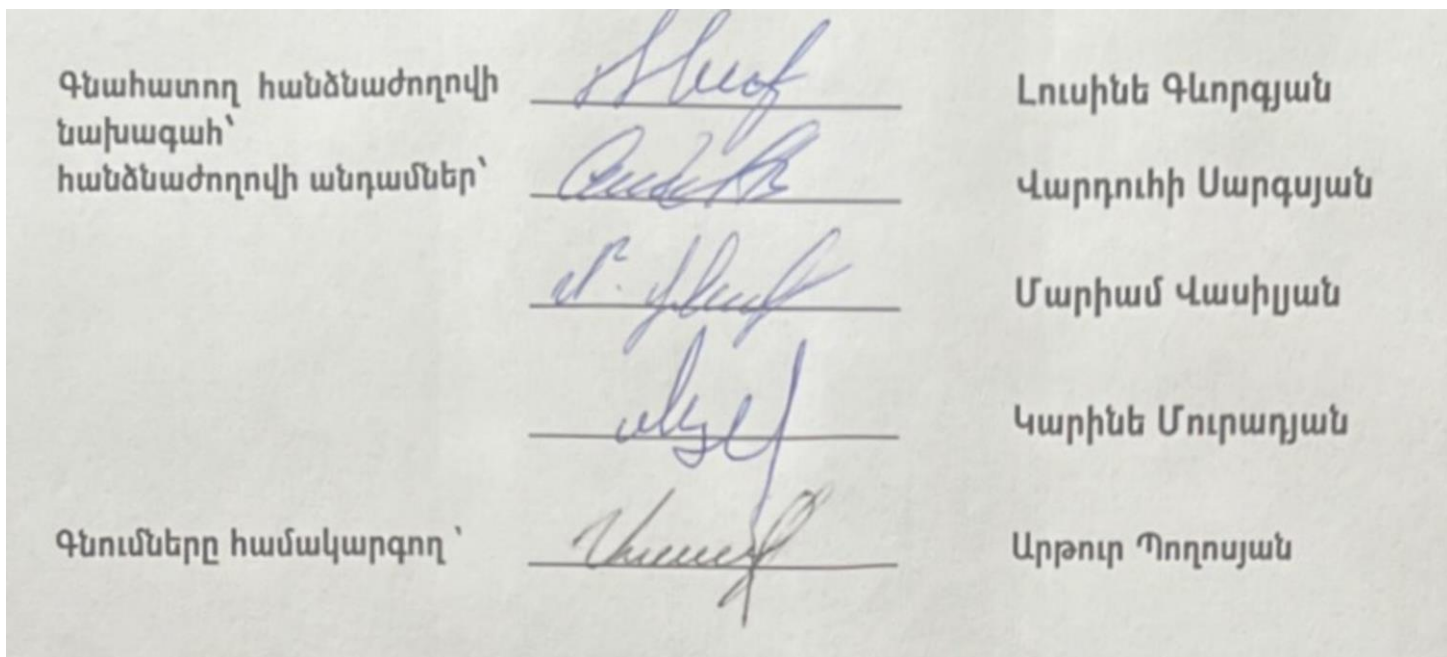 Գնահատող հանձնաժողովի
նախագահ՝ Լուսինե Գևորգյան
հանձնաժողովի անդամներ՝ Վարդուհի Սարգսյան
Մարիամ Վասիլյան
Կարինե Մուրադյան
Գնումները համակարգող ՝ Արթուր Պողոսյան